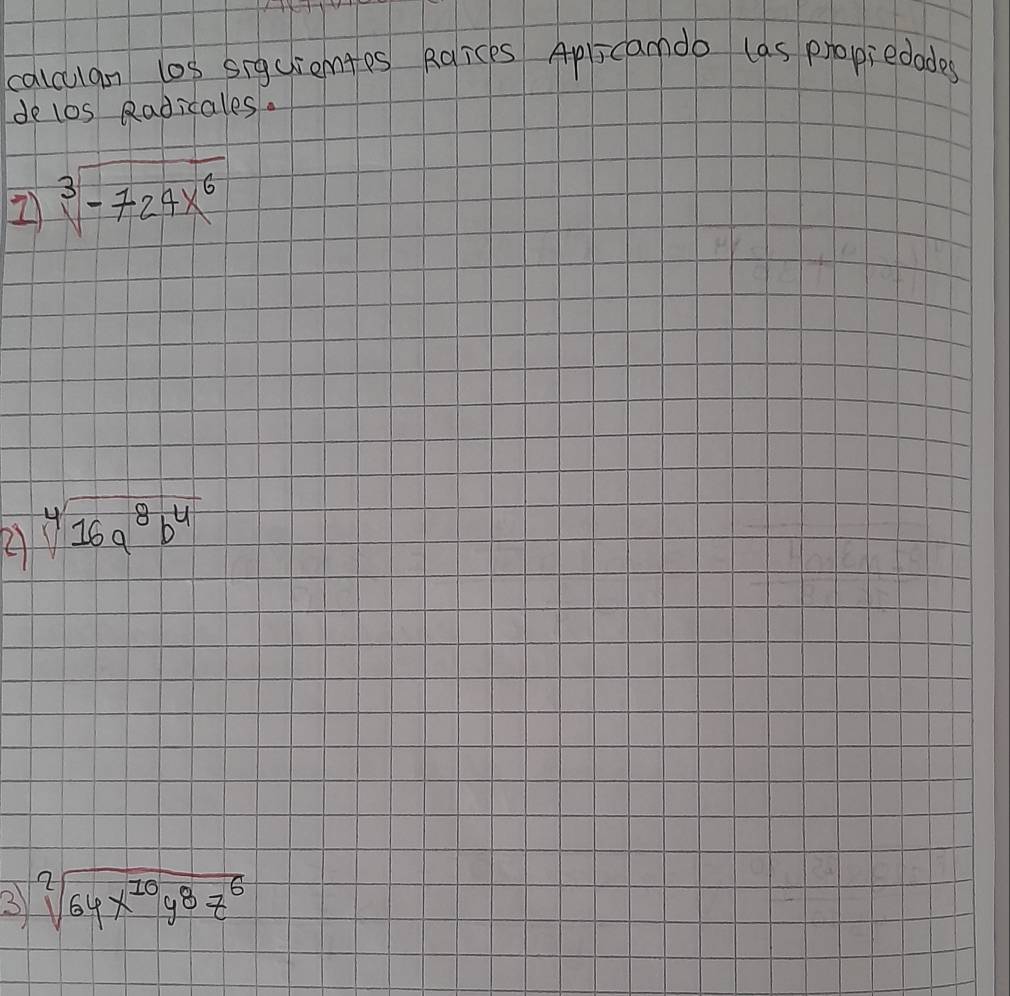 calcular los siguientes Raíces Aplicando las propiedades
de los Radicales.
1) ∛-729x⁶
2) ∜16a⁸b⁴
3) ²√64x¹⁰y⁸z⁶